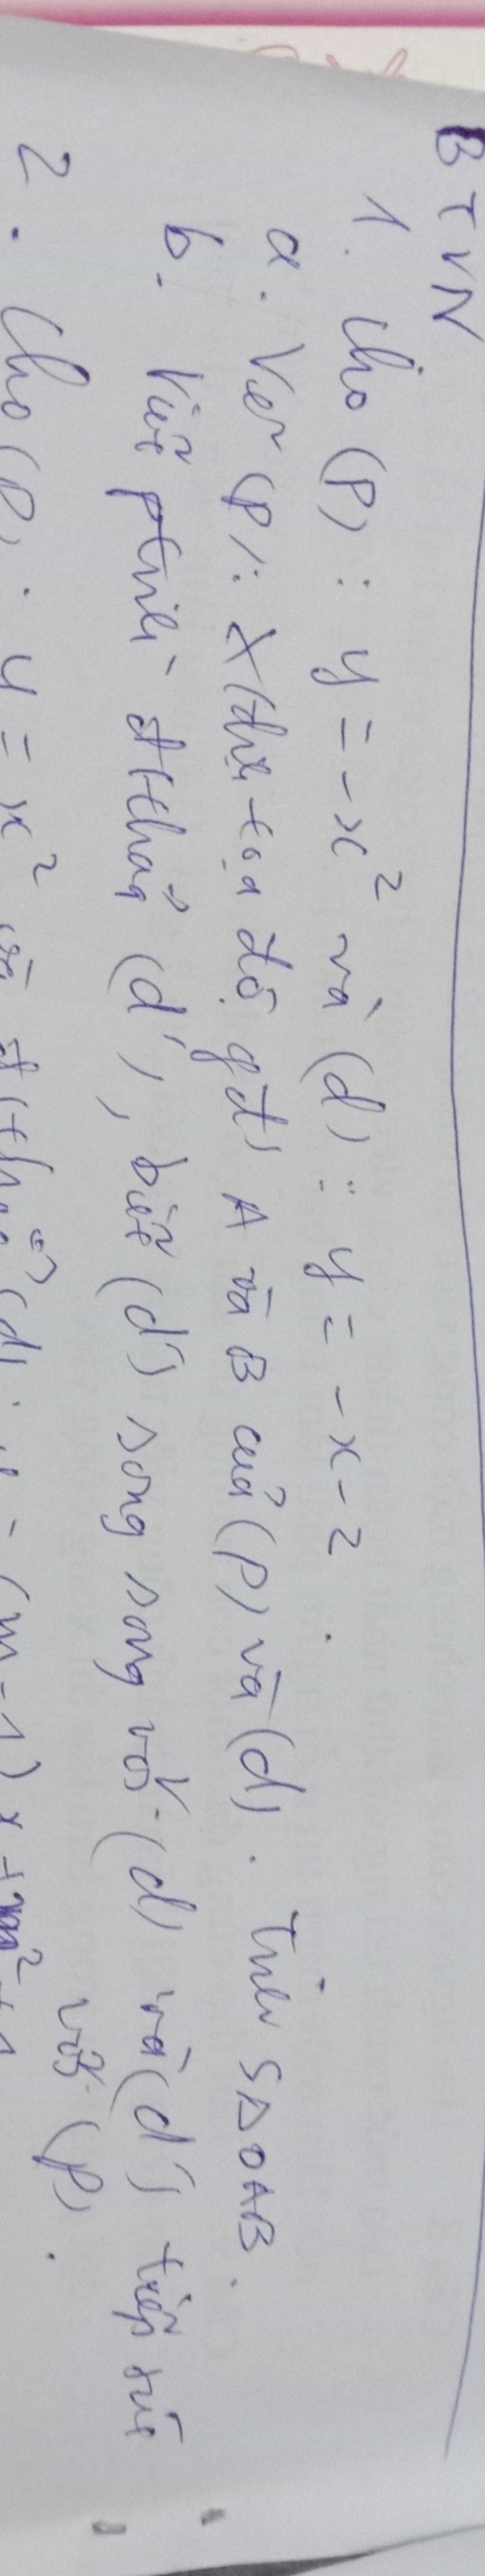 BTVN
1. Cho (P): y = -x² và (d): y = -x-2.
a. Vẽ (P). Xđịnh tọa độ gđ' A và B của (P) và (d). Tính SΔOAB.
b. Viết ptrình đthẳng (d'), biết (d') song song với (d) và (d') tiếp xúc
với (P).
2. Cho (P): y = x² và đthẳng (d): y = (m-1)x +